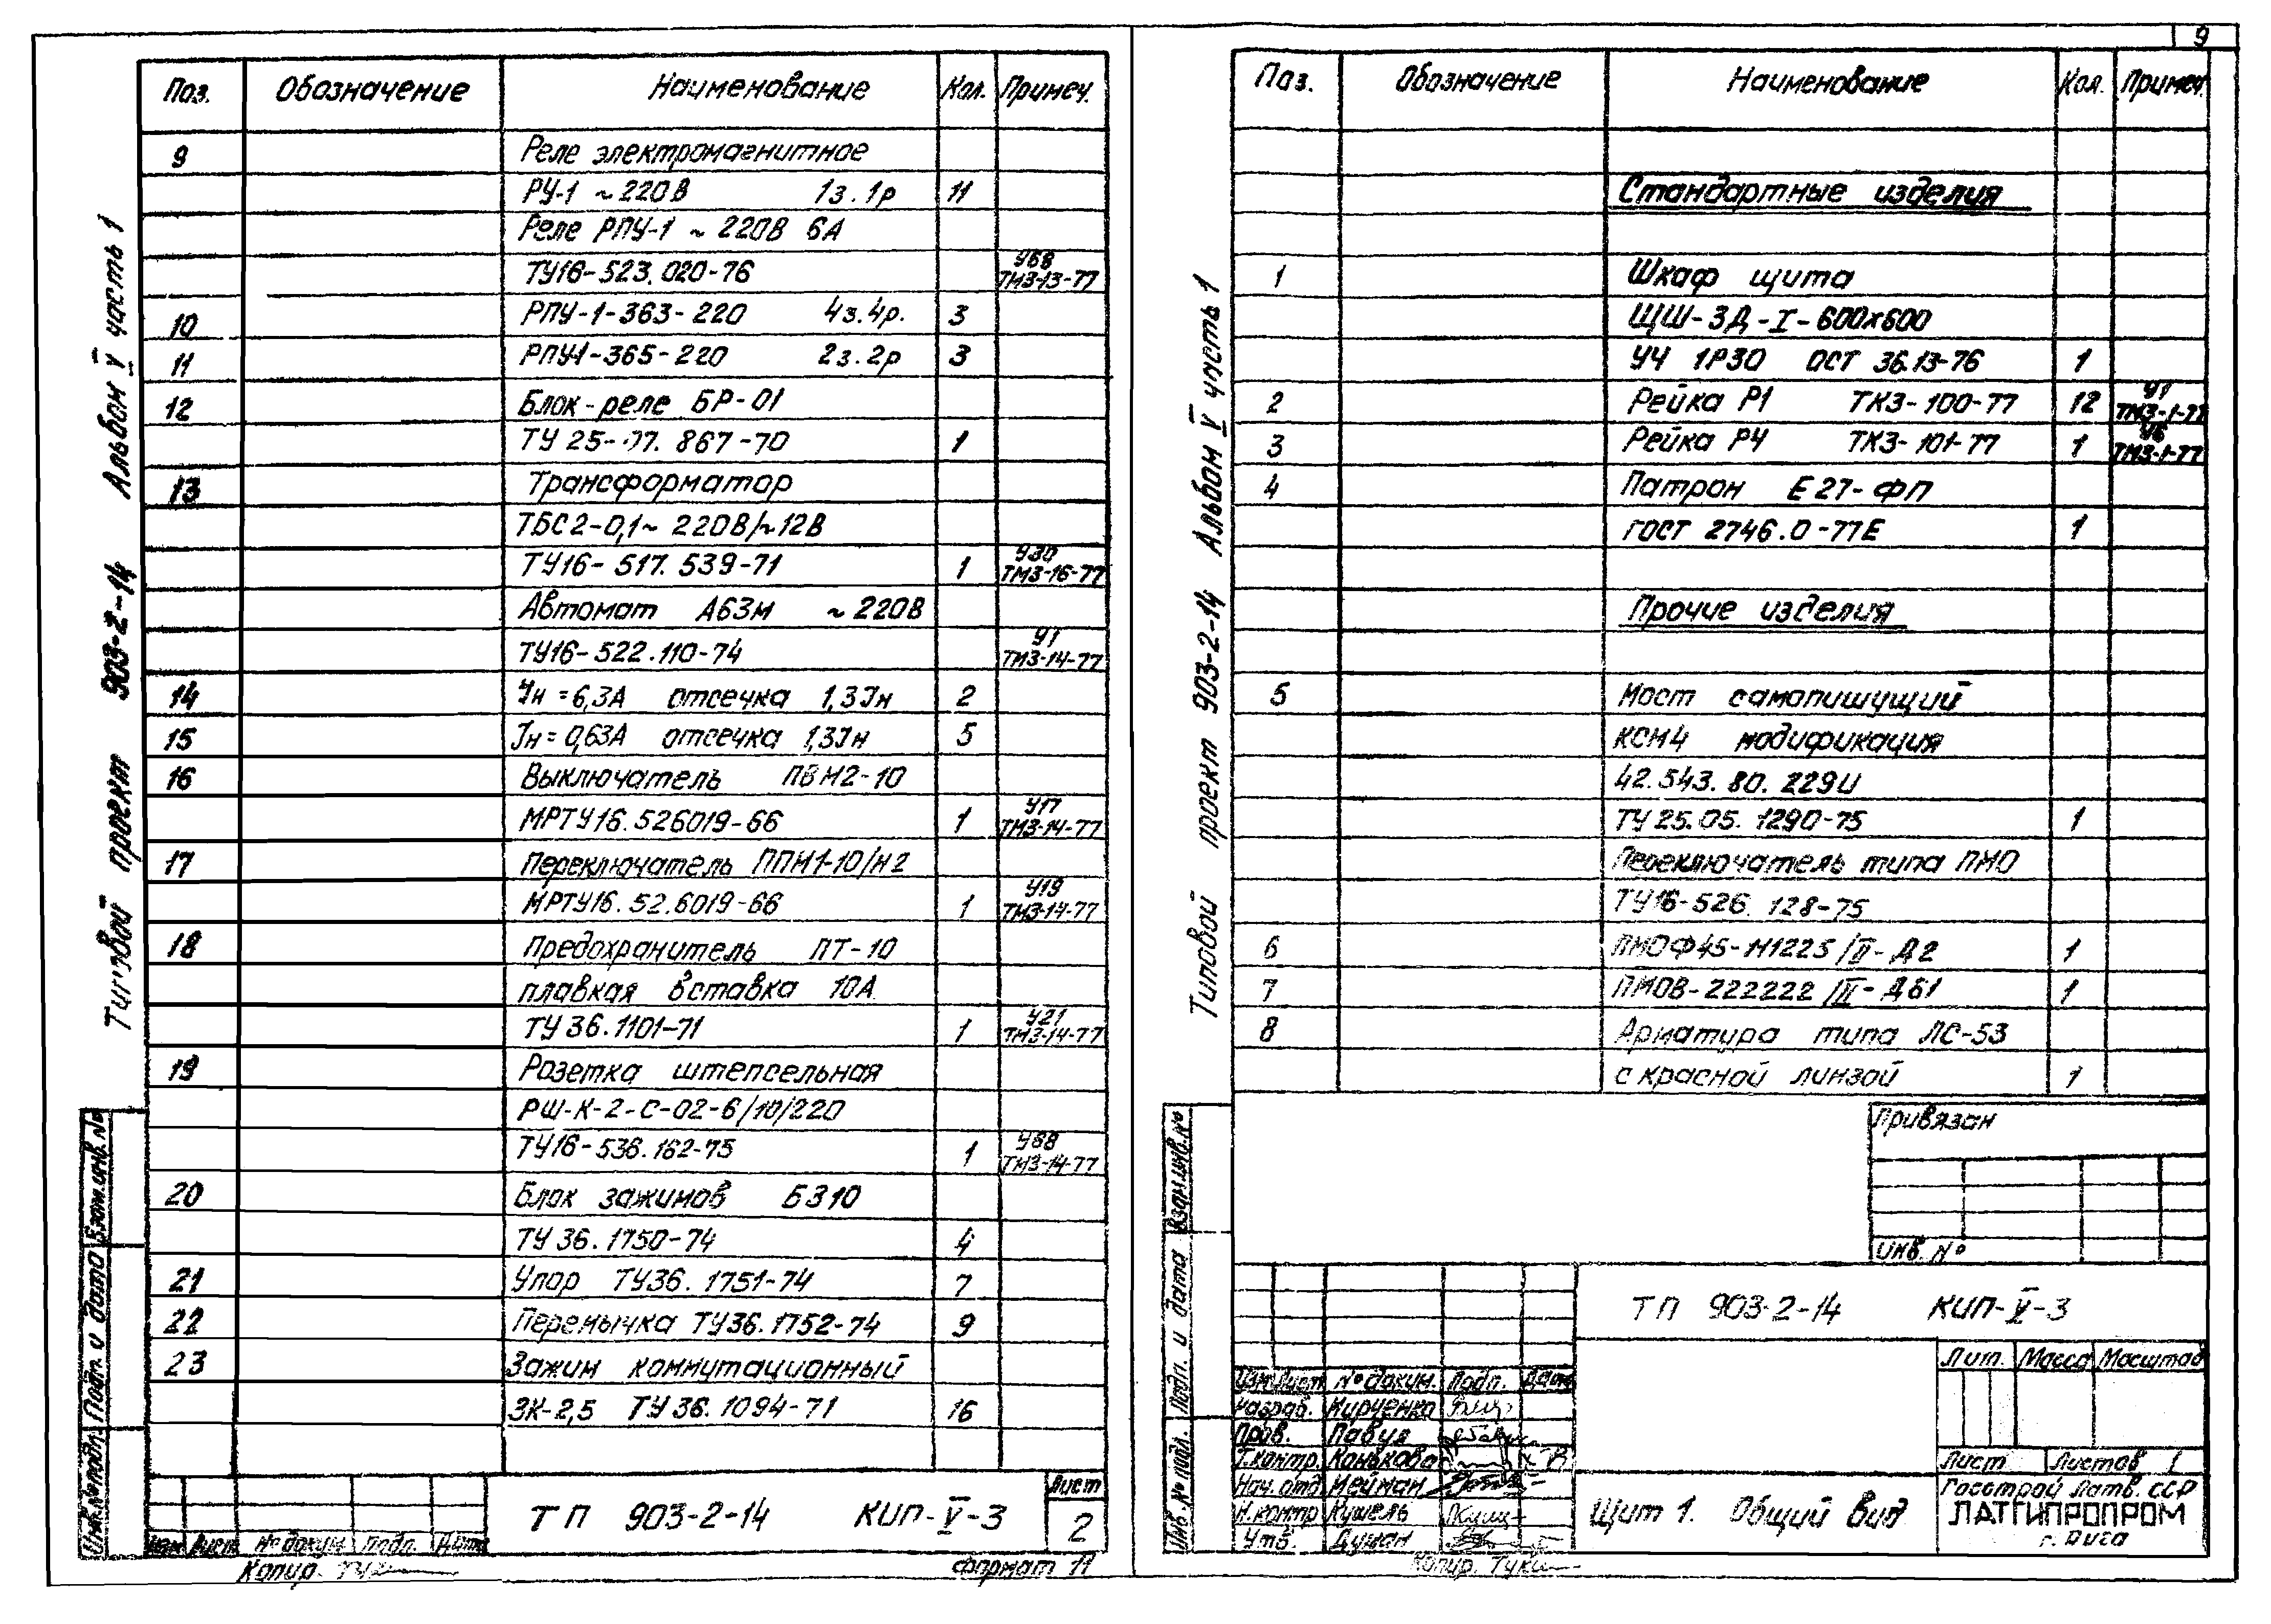 9
Типовой проект 903-2-14 Альбом V часть 1
Поз. Обозначение Наименование Кол. Примеч.
9 Реле электромагнитное
РУ-1 ~220В 1з.1р 11
Реле РПУ-1 ~ 220В 6А
ТУ16-523.020-76 У68 ТМ3-13-77
10 РПУ-1-363-220 4з.4р. 3
11 РПУ-1-365-220 2з.2р 3
12 Блок-реле БР-01
ТУ 25-07.867-70 1
13 Трансформатор
ТБС2-0,1~ 220В/~12В
ТУ16-517.539-71 1 У30 ТМ3-16-77
Автомат А63м ~220В
ТУ16-522.110-74 У1 ТМ3-14-77
14 Jн=6,3А отсечка 1,3Jн 2
15 Jн=0,63А отсечка 1,3Jн 5
16 Выключатель ПВМ2-10
МРТУ16.526019-66 1 У17 ТМ3-14-77
17 Переключатель ППМ1-10/Н2
МРТУ16.52.6019-66 1 У19 ТМ3-14-77
18 Предохранитель ПТ-10
плавкая вставка 10А
ТУ 36.1101-71 1 У21 ТМ3-14-77
19 Розетка штепсельная
РШ-К-2-С-02-6/10/220
ТУ16-536.162-75 1 У88 ТМ3-14-77
20 Блок зажимов БЗ10
ТУ 36.1750-74 4
21 Упор ТУ36.1751-74 7
22 Перемычка ТУ36.1752-74 9
23 Зажим коммутационный
ЗК-2,5 ТУ 36.1094-71 16
Взам.инв.№
Подп. и дата
Инв.№ подл.
Изм Лист № докум Подп. Дата
ТП 903-2-14 КИП-V-3
Лист
2
Копир.
Формат 11
Типовой проект 903-2-14 Альбом V часть 1
Поз. Обозначение Наименование Кол. Примеч.
Стандартные изделия
1 Шкаф щита
ЩШ-ЗД-I-600х600
УЧ 1Р30 ОСТ 36.13-76 1
2 Рейка Р1 ТК3-100-77 12 У1 ТМ3-1-77
3 Рейка Р4 ТК3-101-77 1 У6 ТМ3-1-77
4 Патрон Е27-ФП
ГОСТ 2746.0-77Е 1
Прочие изделия
5 Мост самопишущий
КСМ4 модификация
42.543.80.229И
ТУ 25.05.1290-75 1
Переключатель типа ПМО
ТУ16-526.128-75
6 ПМОФ45-Н1225/II-Д2 1
7 ПМОВ-222222/III-Д61 1
8 Арматура типа ЛС-53
с красной линзой 1
Привязан
Инв. №
Взам.инв.№
Подп. и дата
Инв.№ подл.
ТП 903-2-14 КИП-V-3
Лит. Масса Масштаб
Изм Лист № докум. Подп. Дата
Разраб. Кирченко
Пров. Павул
Т.контр. Конькова
Нач. отд. Нейман
Н.контр Кушель
Утв. Думан
Щит 1. Общий вид
Лист Листов 1
Госстрой Латв. ССР
ЛАТГИПРОПРОМ
г. Рига
Копир.